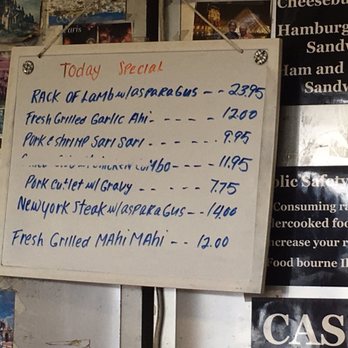 Today Special
Rack of Lamb w/asparagus -- 23.95
Fresh Grilled Garlic Ahi ----- 12.00
Pork & shrimp Sari Sari --- 9.95
Combo -- 11.95
Pork Cutlet w/ Gravy ----- 7.75
New York Steak w/asparagus -- 14.00
Fresh Grilled Mahi Mahi -- 12.00
Cheesebu
Hamburg
Sandw
Ham and
Sandw
lic Safety
Consuming ra
ercooked foo
crease your r
Food bourne Il
CAS